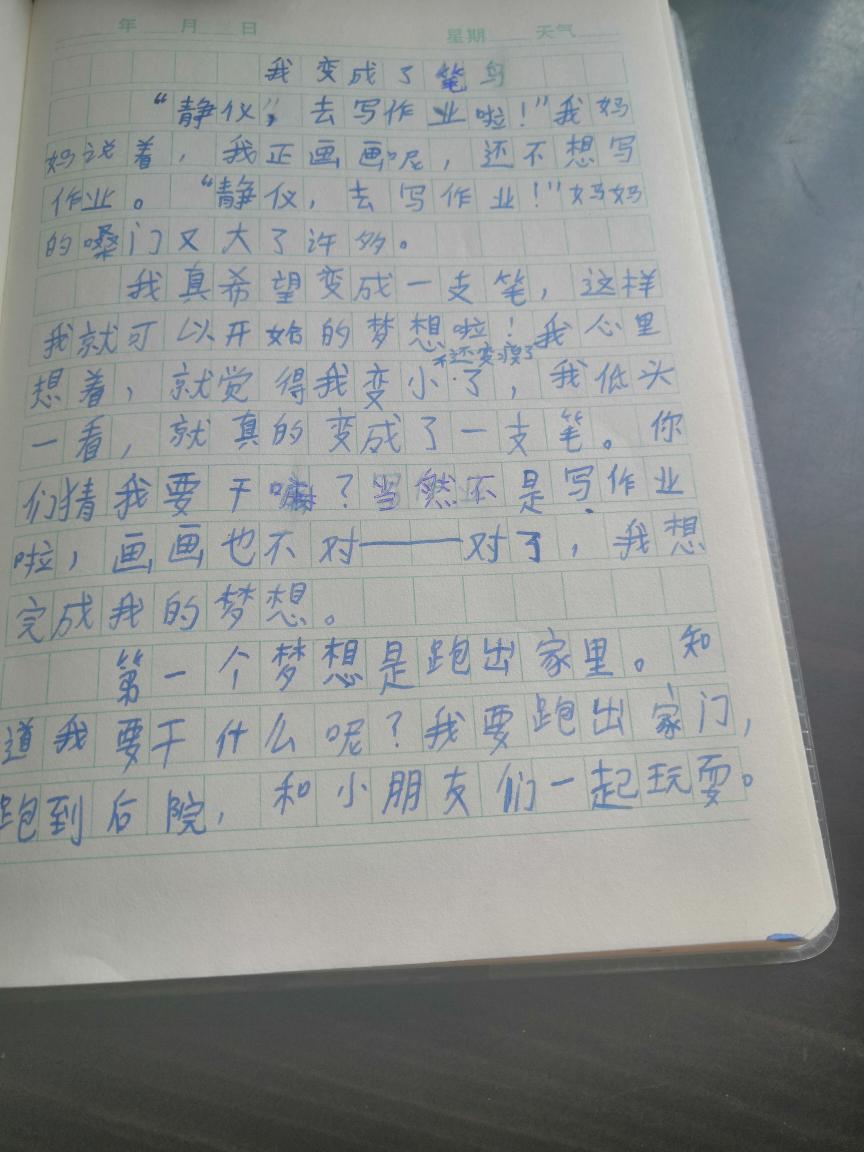 年 月 日 星期 天气
我变成了笔
"静仪，去写作业啦！"我妈
妈说着，我正画画呢，还不想写
作业。"静仪，去写作业！"妈妈
的嗓门又大了许多。
我真希望变成一支笔，这样
我就可以开始的梦想啦！我心里
还变瘦了
想着，就觉得我变小了，我低头
一看，就真的变成了一支笔。你
们猜我要干嘛？当然不是写作业
啦，画画也不对——对了，我想
完成我的梦想。
第一个梦想是跑出家里。知
道我要干什么呢？我要跑出家门，
跑到后院，和小朋友们一起玩耍。